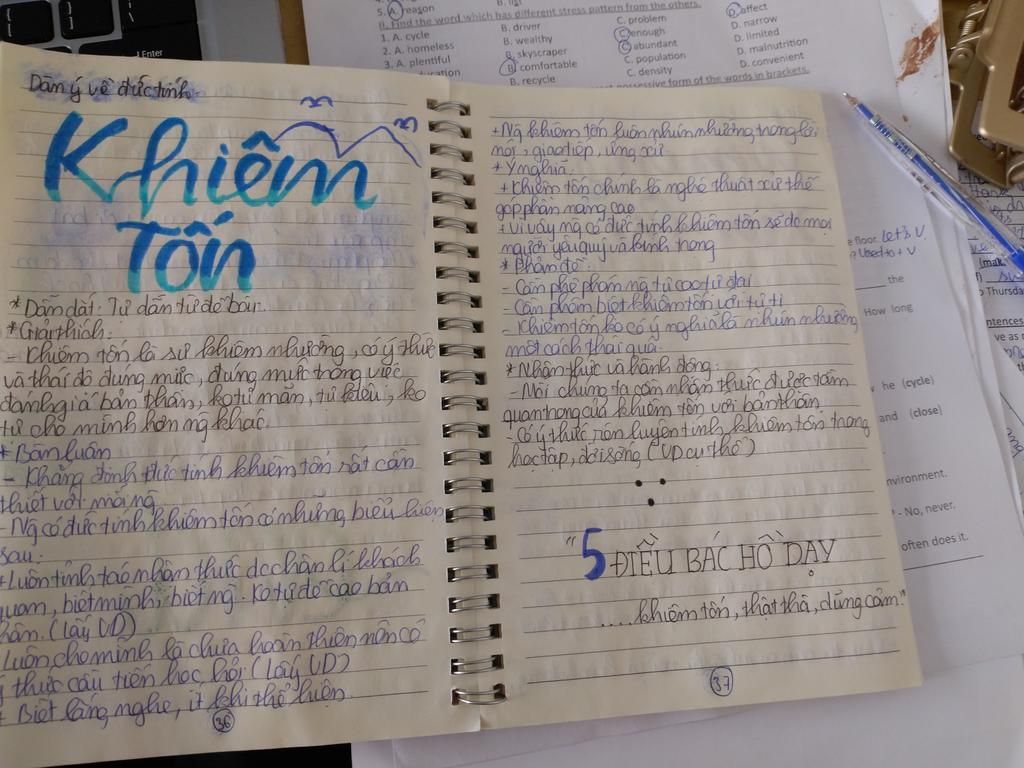 Dàn ý về đức tính
Khiêm
Tốn
* Dẫn dắt: Tự dẫn từ đề bài.
* Giải thích:
- Khiêm tốn là sự khiêm nhường, có ý thức
và thái độ đúng mực, đúng mực trong việc
đánh giá bản thân, ko tự mãn, tự kiêu, ko
tự cho mình hơn ng khác.
* Bàn luận
- Khẳng định đức tính khiêm tốn rất cần
thiết với mỗi ng
- Ng có đức tính khiêm tốn có những biểu hiện
sau:
+ Luôn tỉnh táo nhận thức đc chân lí khách
quan, biết mình, biết ng. Ko tự đề cao bản
thân. (lấy VD)
Luôn cho mình là chưa hoàn thiện nên có
ý thức cầu tiến học hỏi (lấy VD)
+ Biết lắng nghe, ít khi thể hiện
36
+ Ng khiêm tốn luôn nhún nhường trong lời
nói, giao tiếp, ứng xử
* Ý nghĩa
+ Khiêm tốn chính là nghệ thuật xử thế
góp phần nâng cao
+ Vì vậy ng có đức tính khiêm tốn sẽ đc mọi
người yêu quý và kính trọng
* Phản đề:
- Cần phê phán ng tự cao tự đại
- Cần phân biệt khiêm tốn với tự ti
- Khiêm tốn ko có ý nghĩa là nhún nhường
một cách thái quá.
* Nhận thức và hành động:
- Mỗi chúng ta cần nhận thức được tầm
quan trọng của khiêm tốn với bản thân
- Có ý thức rèn luyện tính khiêm tốn trong
học tập, đời sống (VD cụ thể)
"5 ĐIỀU BÁC HỒ DẠY
.... khiêm tốn, thật thà, dũng cảm."
37
5. A. reason
D. affect
II. Find the word which has different stress pattern from the others.
1. A. cycle B. driver C. problem D. narrow
2. A. homeless B. wealthy C. enough D. limited
3. A. plentiful B. skyscraper C. abundant D. malnutrition
B. comfortable C. population D. convenient
B. recycle C. density
possessive form of the words in brackets.
Enter
floor. let's V
Used to + V
the
Thursda
How long
ve as
he (cycle)
and (close)
nvironment.
- No, never.
often does it.